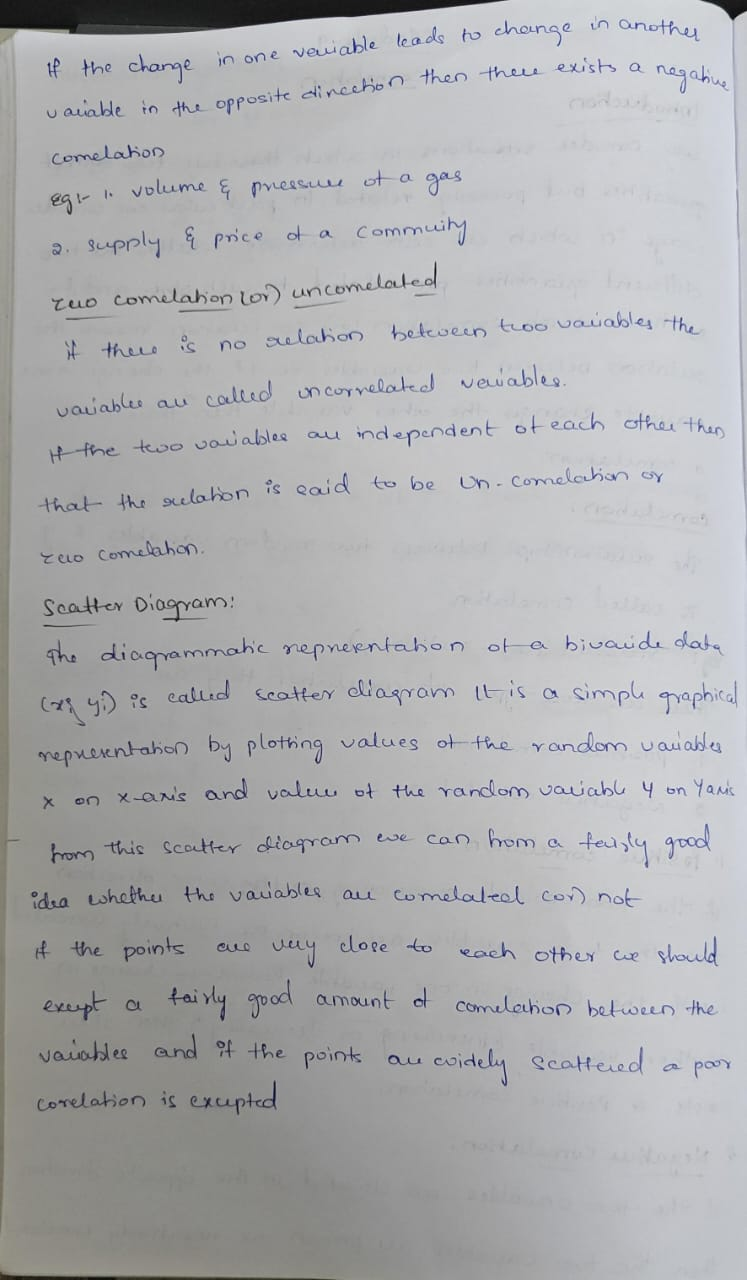 If the change in one variable leads to change in another
variable in the opposite direction then there exists a negative
correlation
Eg:- 1. volume & pressure of a gas
2. supply & price of a commuity
zero correlation (or) uncorrelated
if there is no relation between two variables the
variables are called uncorrelated variables.
If the two variables are independent of each other then
that the relation is said to be Un-correlation or
zero correlation.
Scatter Diagram:
The diagrammatic representation of a bivariate data
(xi, yi) is called scatter diagram It is a simple graphical
representation by plotting values of the random variables
x on x-axis and value of the random variable y on Yaxis
from this scatter diagram we can from a fairly good
idea whether the variables are correlated (or) not
if the points are very close to each other we should
except a fairly good amount of correlation between the
variables and if the points are widely scattered a poor
corelation is excepted